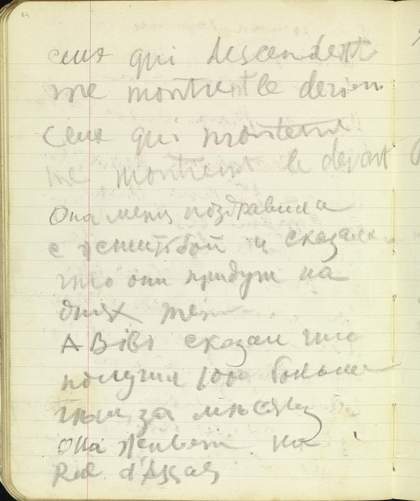 ceux qui descendent
me montrent le derier
ceux qui montent
me montrent le devant
Она меня поздравила
с женитьбой и сказала
что они придут на
днях
А Bibi сказал что
получил 100 больше
чем за
она живет на
Rue d'Assas